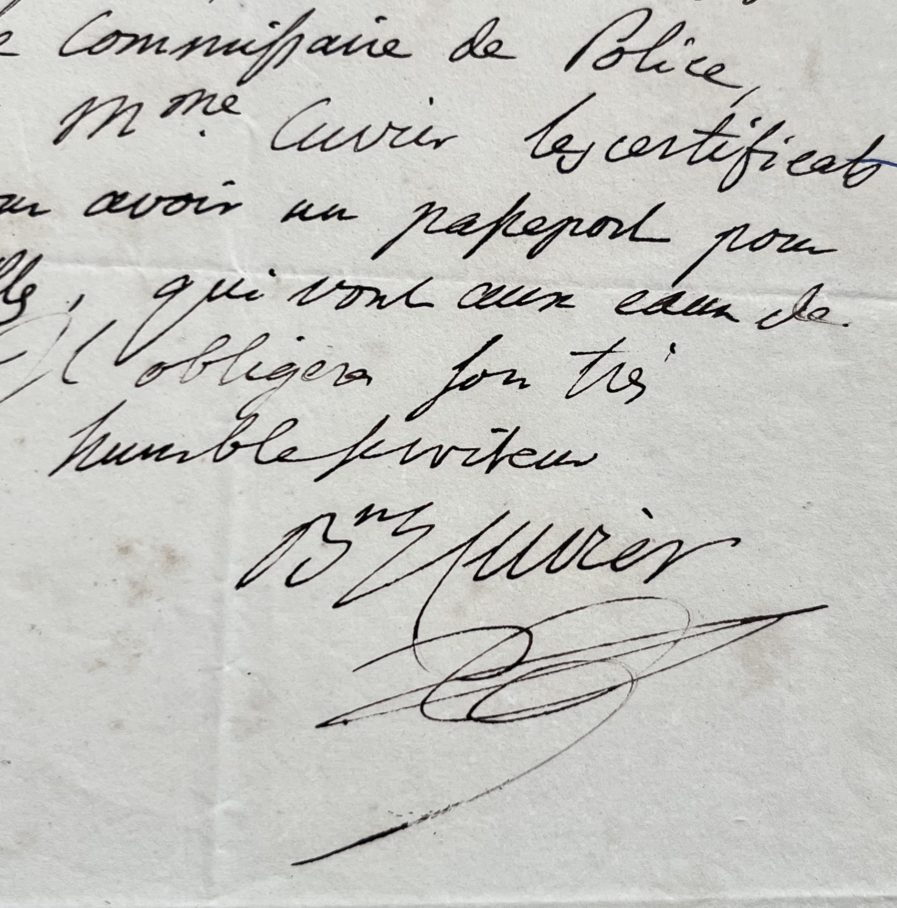 Commissaire de Police,
Mme. Cuvier les certificats
avoir un passeport pour
qui vont aux eaux de
Il obligera son très
humble serviteur
Bn G Cuvier